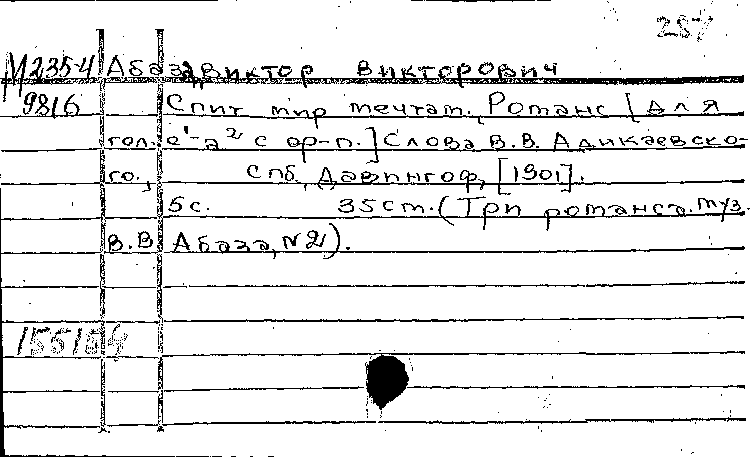 257
М235-4 Абаза, Виктор Викторович
9816 Спит мир мечтат., Романс [Для
гол. e¹-a² с ор-п.] Слова В.В. Адикаевско-
го., Спб, Давингоф, [1901].
5с. 35cm. (Три романса муз.
В.В. Абаза, №2).
155164